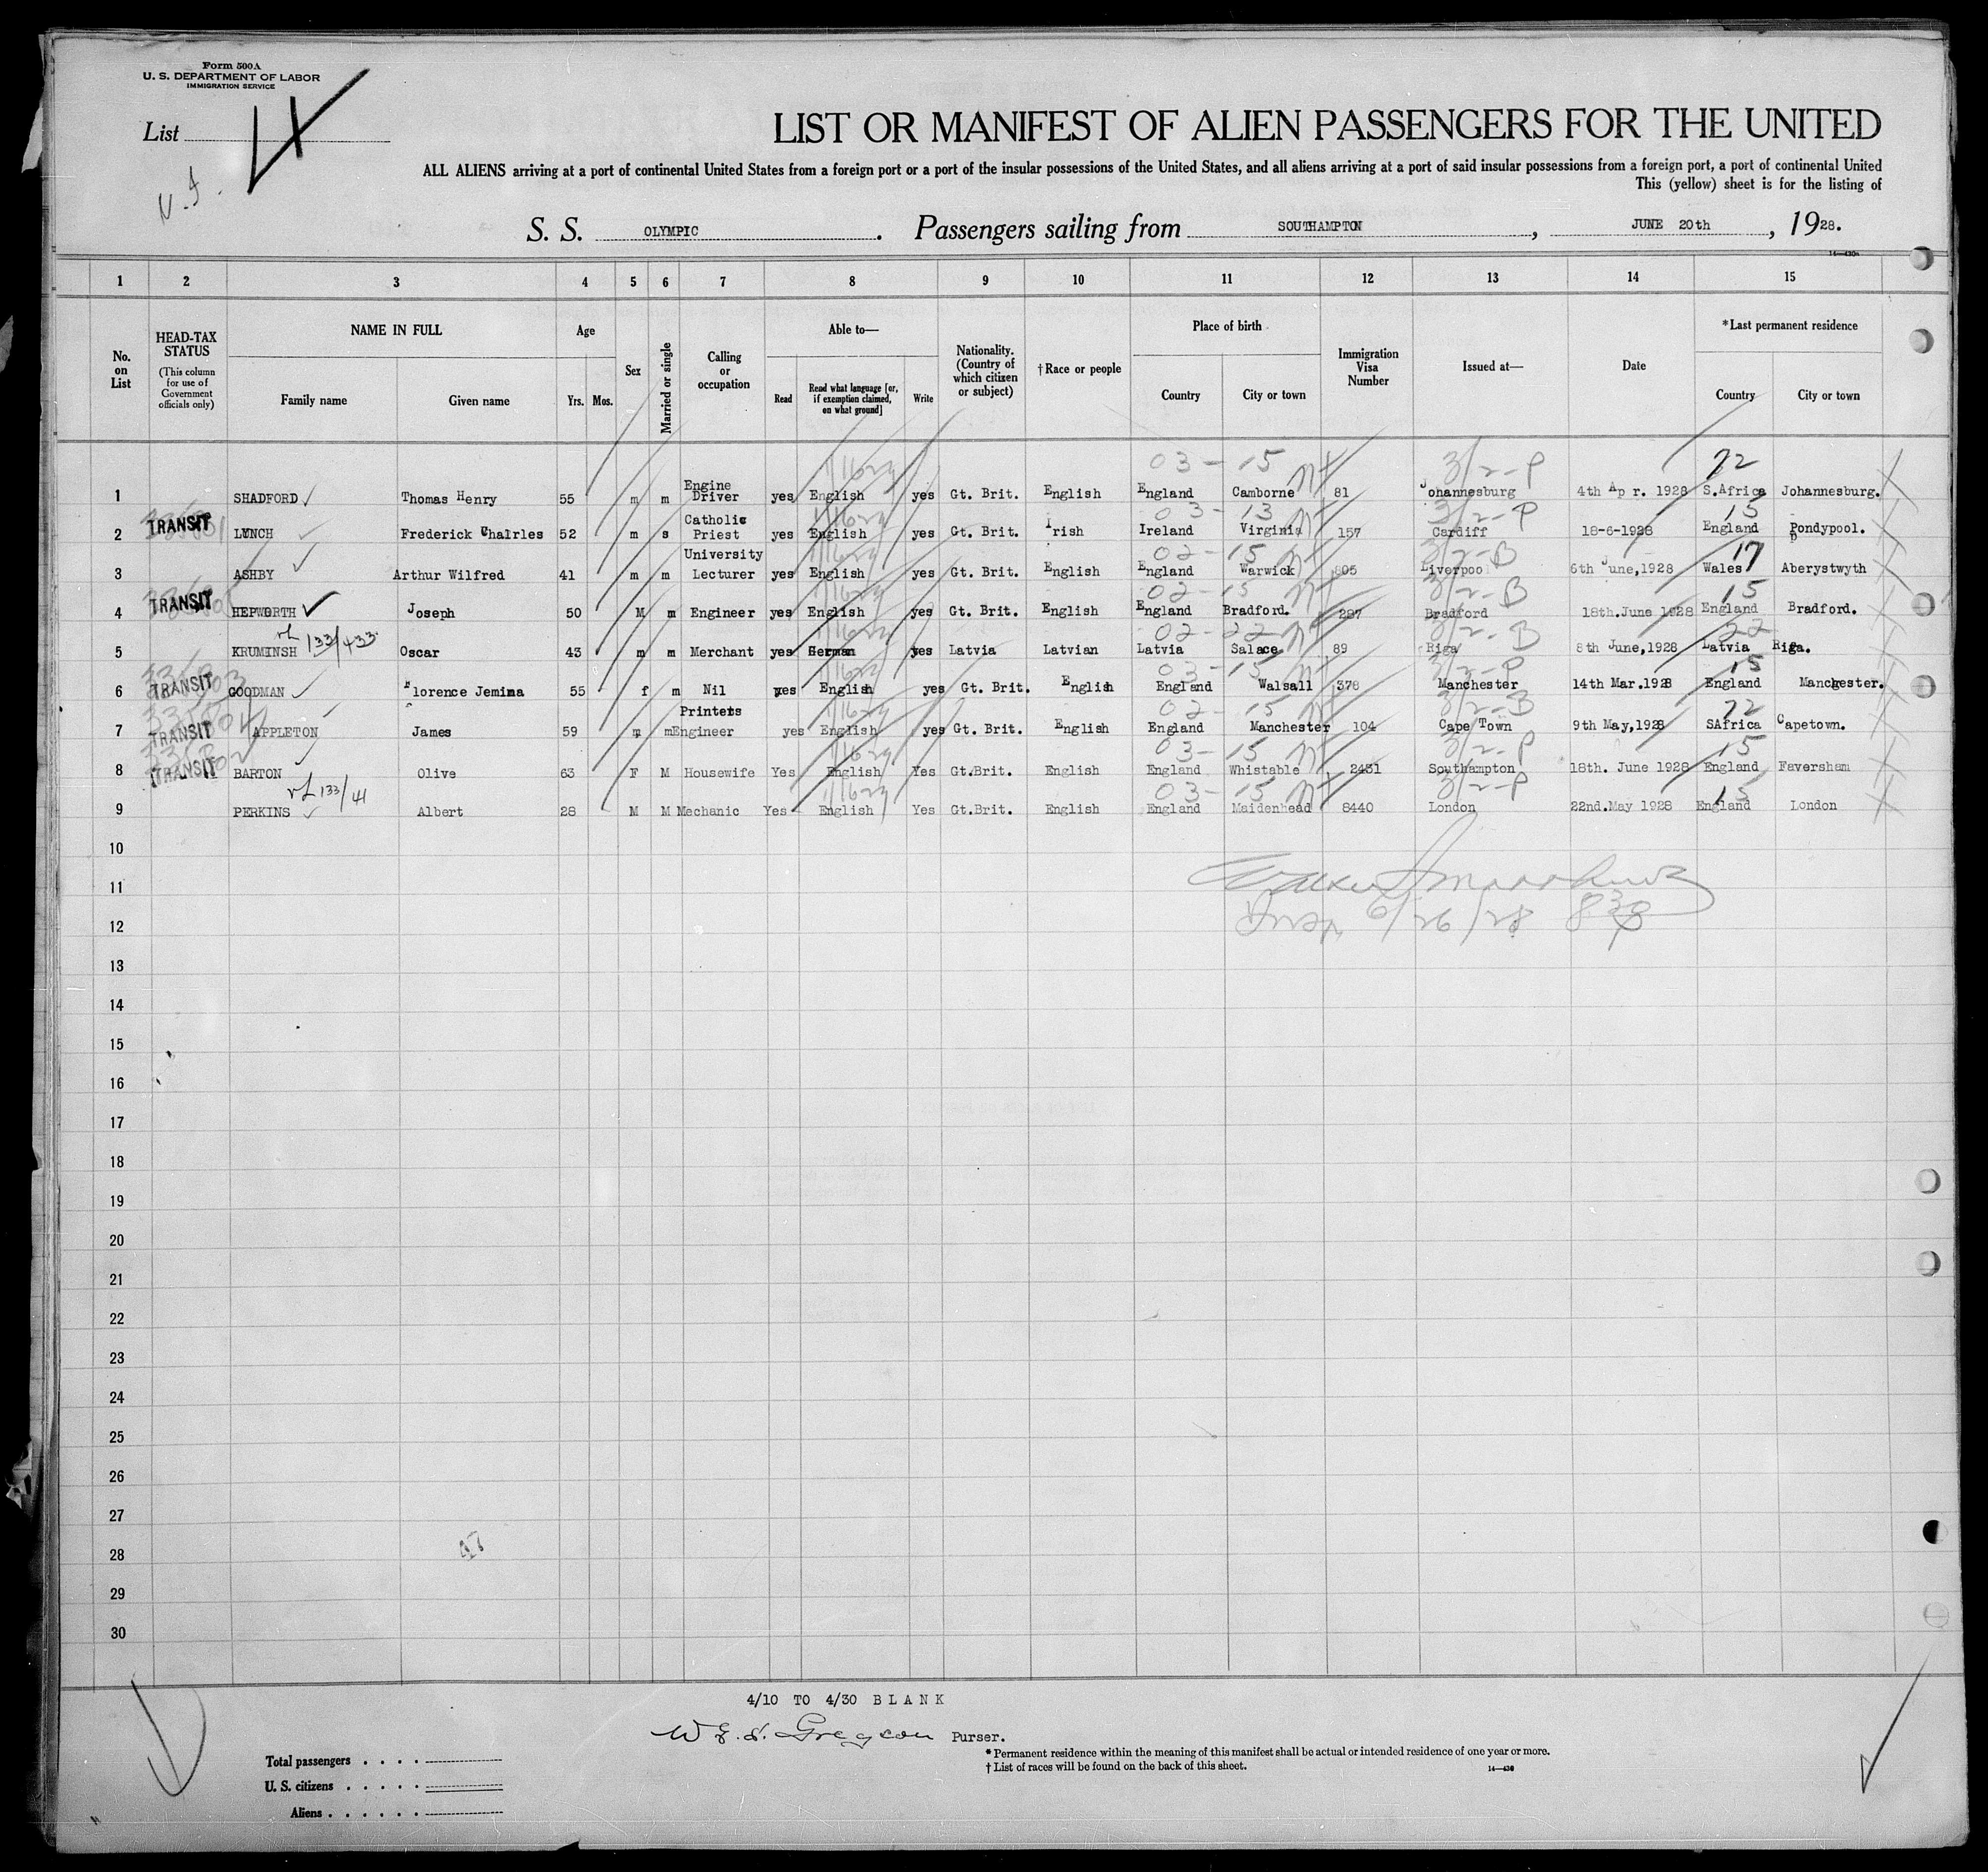 Form 500A
U. S. DEPARTMENT OF LABOR
IMMIGRATION SERVICE
List 4
LIST OR MANIFEST OF ALIEN PASSENGERS FOR THE UNITED
ALL ALIENS arriving at a port of continental United States from a foreign port or a port of the insular possessions of the United States, and all aliens arriving at a port of said insular possessions from a foreign port, a port of continental United
This (yellow) sheet is for the listing of
S. S. OLYMPIC. Passengers sailing from SOUTHAMPTON, JUNE 20th, 1928.
1 2 3 4 5 6 7 8 9 10 11 12 13 14 15
No. on List
HEAD-TAX STATUS
(This column for use of Government officials only)
NAME IN FULL
Family name Given name
Age
Yrs. Mos.
Sex
Married or single
Calling or occupation
Able to—
Read
Read what language [or, if exemption claimed, on what ground]
Write
Nationality. (Country of which citizen or subject)
†Race or people
Place of birth
Country City or town
Immigration Visa Number
Issued at—
Date
*Last permanent residence
Country City or town
03 - 15 3/2-P 72
1 SHADFORD Thomas Henry 55 m m Engine Driver yes English yes Gt. Brit. English England Camborne 81 Johannesburg 4th Apr. 1928 S.Africa Johannesburg.
03 - 13 3/2-P 15
2 TRANSIT LYNCH Frederick Chalrles 52 m s Catholic Priest yes English yes Gt. Brit. Irish Ireland Virginia 157 Cardiff 18-6-1928 England Pondypool.
02 - 15 3/2-B 17
3 ASHBY Arthur Wilfred 41 m m University Lecturer yes English yes Gt. Brit. English England Warwick 805 Liverpoo 6th June,1928 Wales Aberystwyth
02 - 15 3/2-B 15
4 TRANSIT HEPWORTH Joseph 50 M m Engineer yes English yes Gt. Brit. English England Bradford. 287 Bradford 18th.June 1928 England Bradford.
133/433 02-22 3/2-B 22
5 KRUMINSH Oscar 43 m m Merchant yes German yes Latvia Latvian Latvia Salace 89 Riga 8th June,1928 Latvia Riga.
03 - 15 3/2-P 15
6 TRANSIT GOODMAN Florence Jemima 55 f m Nil yes English yes Gt. Brit. English England Walsall 378 Manchester 14th Mar.1928 England Manchester.
02 - 15 3/2-B 72
7 TRANSIT APPLETON James 59 m m Printers Engineer yes English yes Gt. Brit. English England Manchester 104 Cape Town 9th May,1928 SAfrica Capetown.
03 - 15 3/2-P 15
8 TRANSIT BARTON Olive 63 F M Housewife Yes English Yes Gt.Brit. English England Whistable 2431 Southampton 18th. June 1928 England Faversham
133/41 03 - 15 3/2-P 15
9 PERKINS Albert 28 M M Mechanic Yes English Yes Gt.Brit. English England Maidenhead 8440 London 22nd.May 1928 England London
10
11
12 6/26/28
13
14
15
16
17
18
19
20
21
22
23
24
25
26
27
28
29
30
4/10 TO 4/30 B L A N K
Gregson Purser.
Total passengers
U. S. citizens
Aliens
* Permanent residence within the meaning of this manifest shall be actual or intended residence of one year or more.
† List of races will be found on the back of this sheet.
14—430